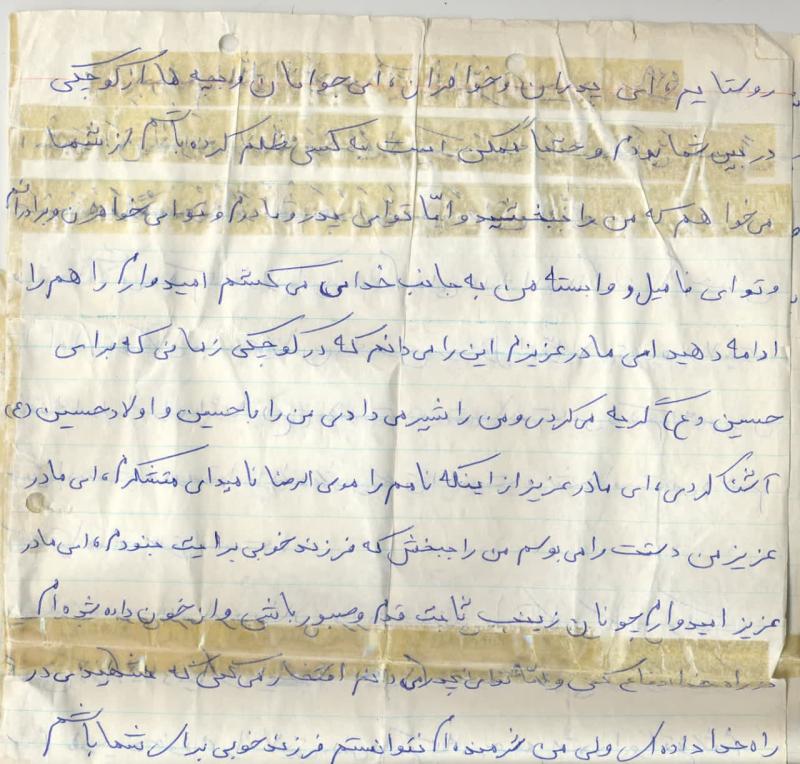 روستایم، ای پدران و خواهران، ای جوانان و بچه ها از کوچکی
در بین شما بودم و حتماً ممکن است به کسی ظلم کرده باشم از شما
می خواهم که من را ببخشید و امّا تو ای پدر و مادرم و تو ای خواهران و برادرانم
و تو ای فامیل و وابسته من به جانب خدا می امیدوارم راهم را
ادامه دهید ای مادر عزیزم این را می دانم که در کوچکی زمانی که برای
حسین (ع) گریه می کردی و من را شیر می دادی من را با حسین و اولاد حسین (ع)
آشنا کردی، ای مادر عزیز از اینکه نامم را موسی الرضا نامیدی متشکرم، ای مادر
عزیز من دستت را می بوسم من را ببخش که فرزند خوبی برایت نبودم، ای مادر
عزیز امیدوارم چونان زینب ثابت قدم و صبور باشی و از خون داده شده ام
در راه خدا دفاع کنی و امّا تو ای پدر می دانم افتخار می کنی که شهیدی در
راه خدا داده ای ولی من شرمنده ام نتوانستم فرزند خوبی برای شما باشم